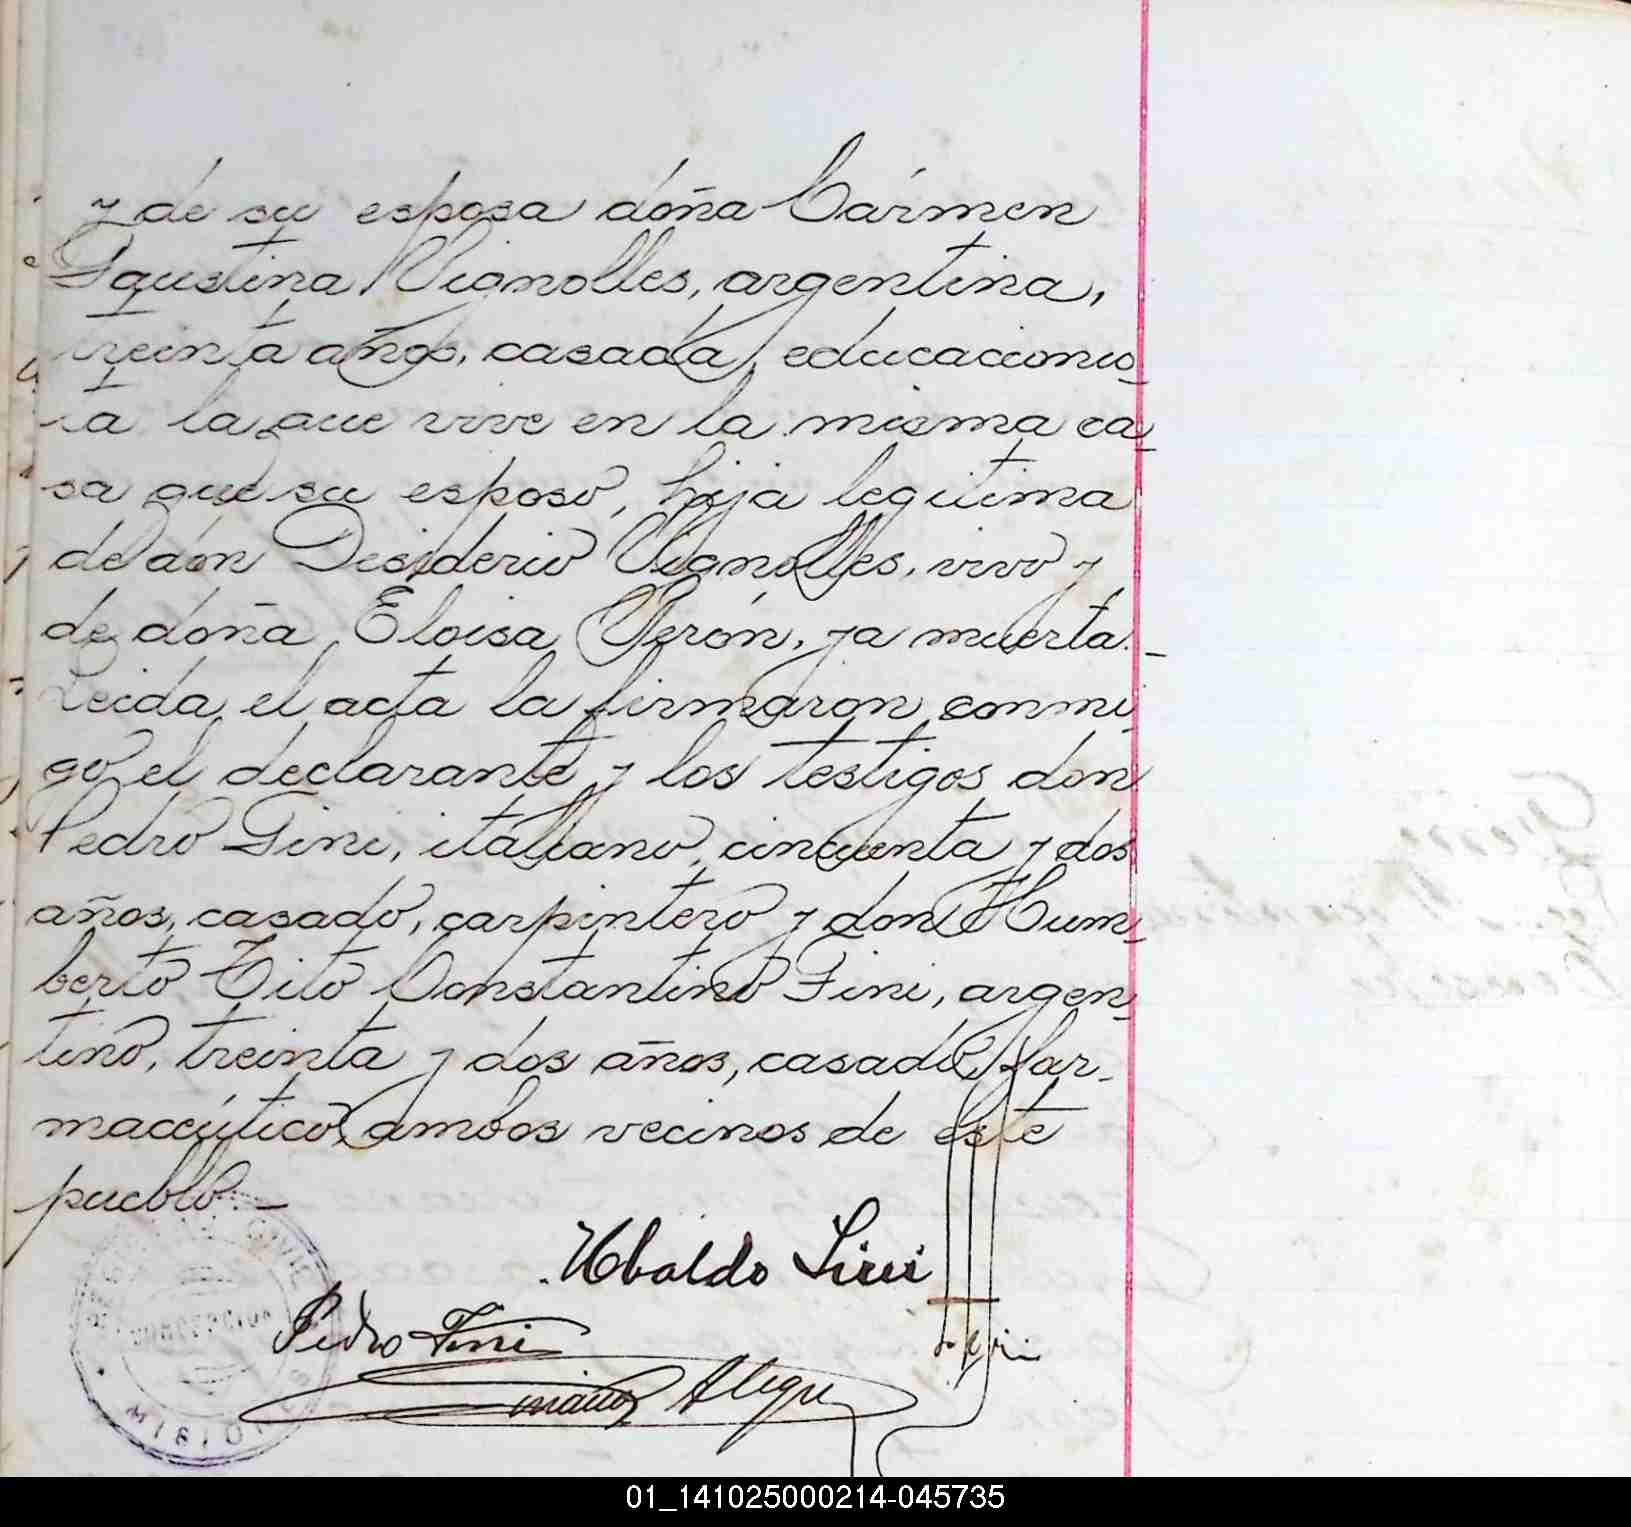 y de su esposa doña Cármen
Agustina Vignolles, argentina,
treinta años, casada, educacionis_
ta la que vive en la misma ca_
sa que su esposo, hija legitima
de dón Desiderio Vignolles, vivo y
de doña Eloisa Verón, ya muerta._
Leida el acta la firmaron conmi_
go el declarante y los testigos don
Pedro Fini, italiano, cincuenta y dos
años, casado, carpintero y don Hum_
berto Tito Constantino Fini, argen_
tino, treinta y dos años, casado, far_
maceútico, ambos vecinos de este
pueblo._
Ubaldo Fini
Pedro Fini
Alegre
CIVIL
MISION
01_141025000214-045735